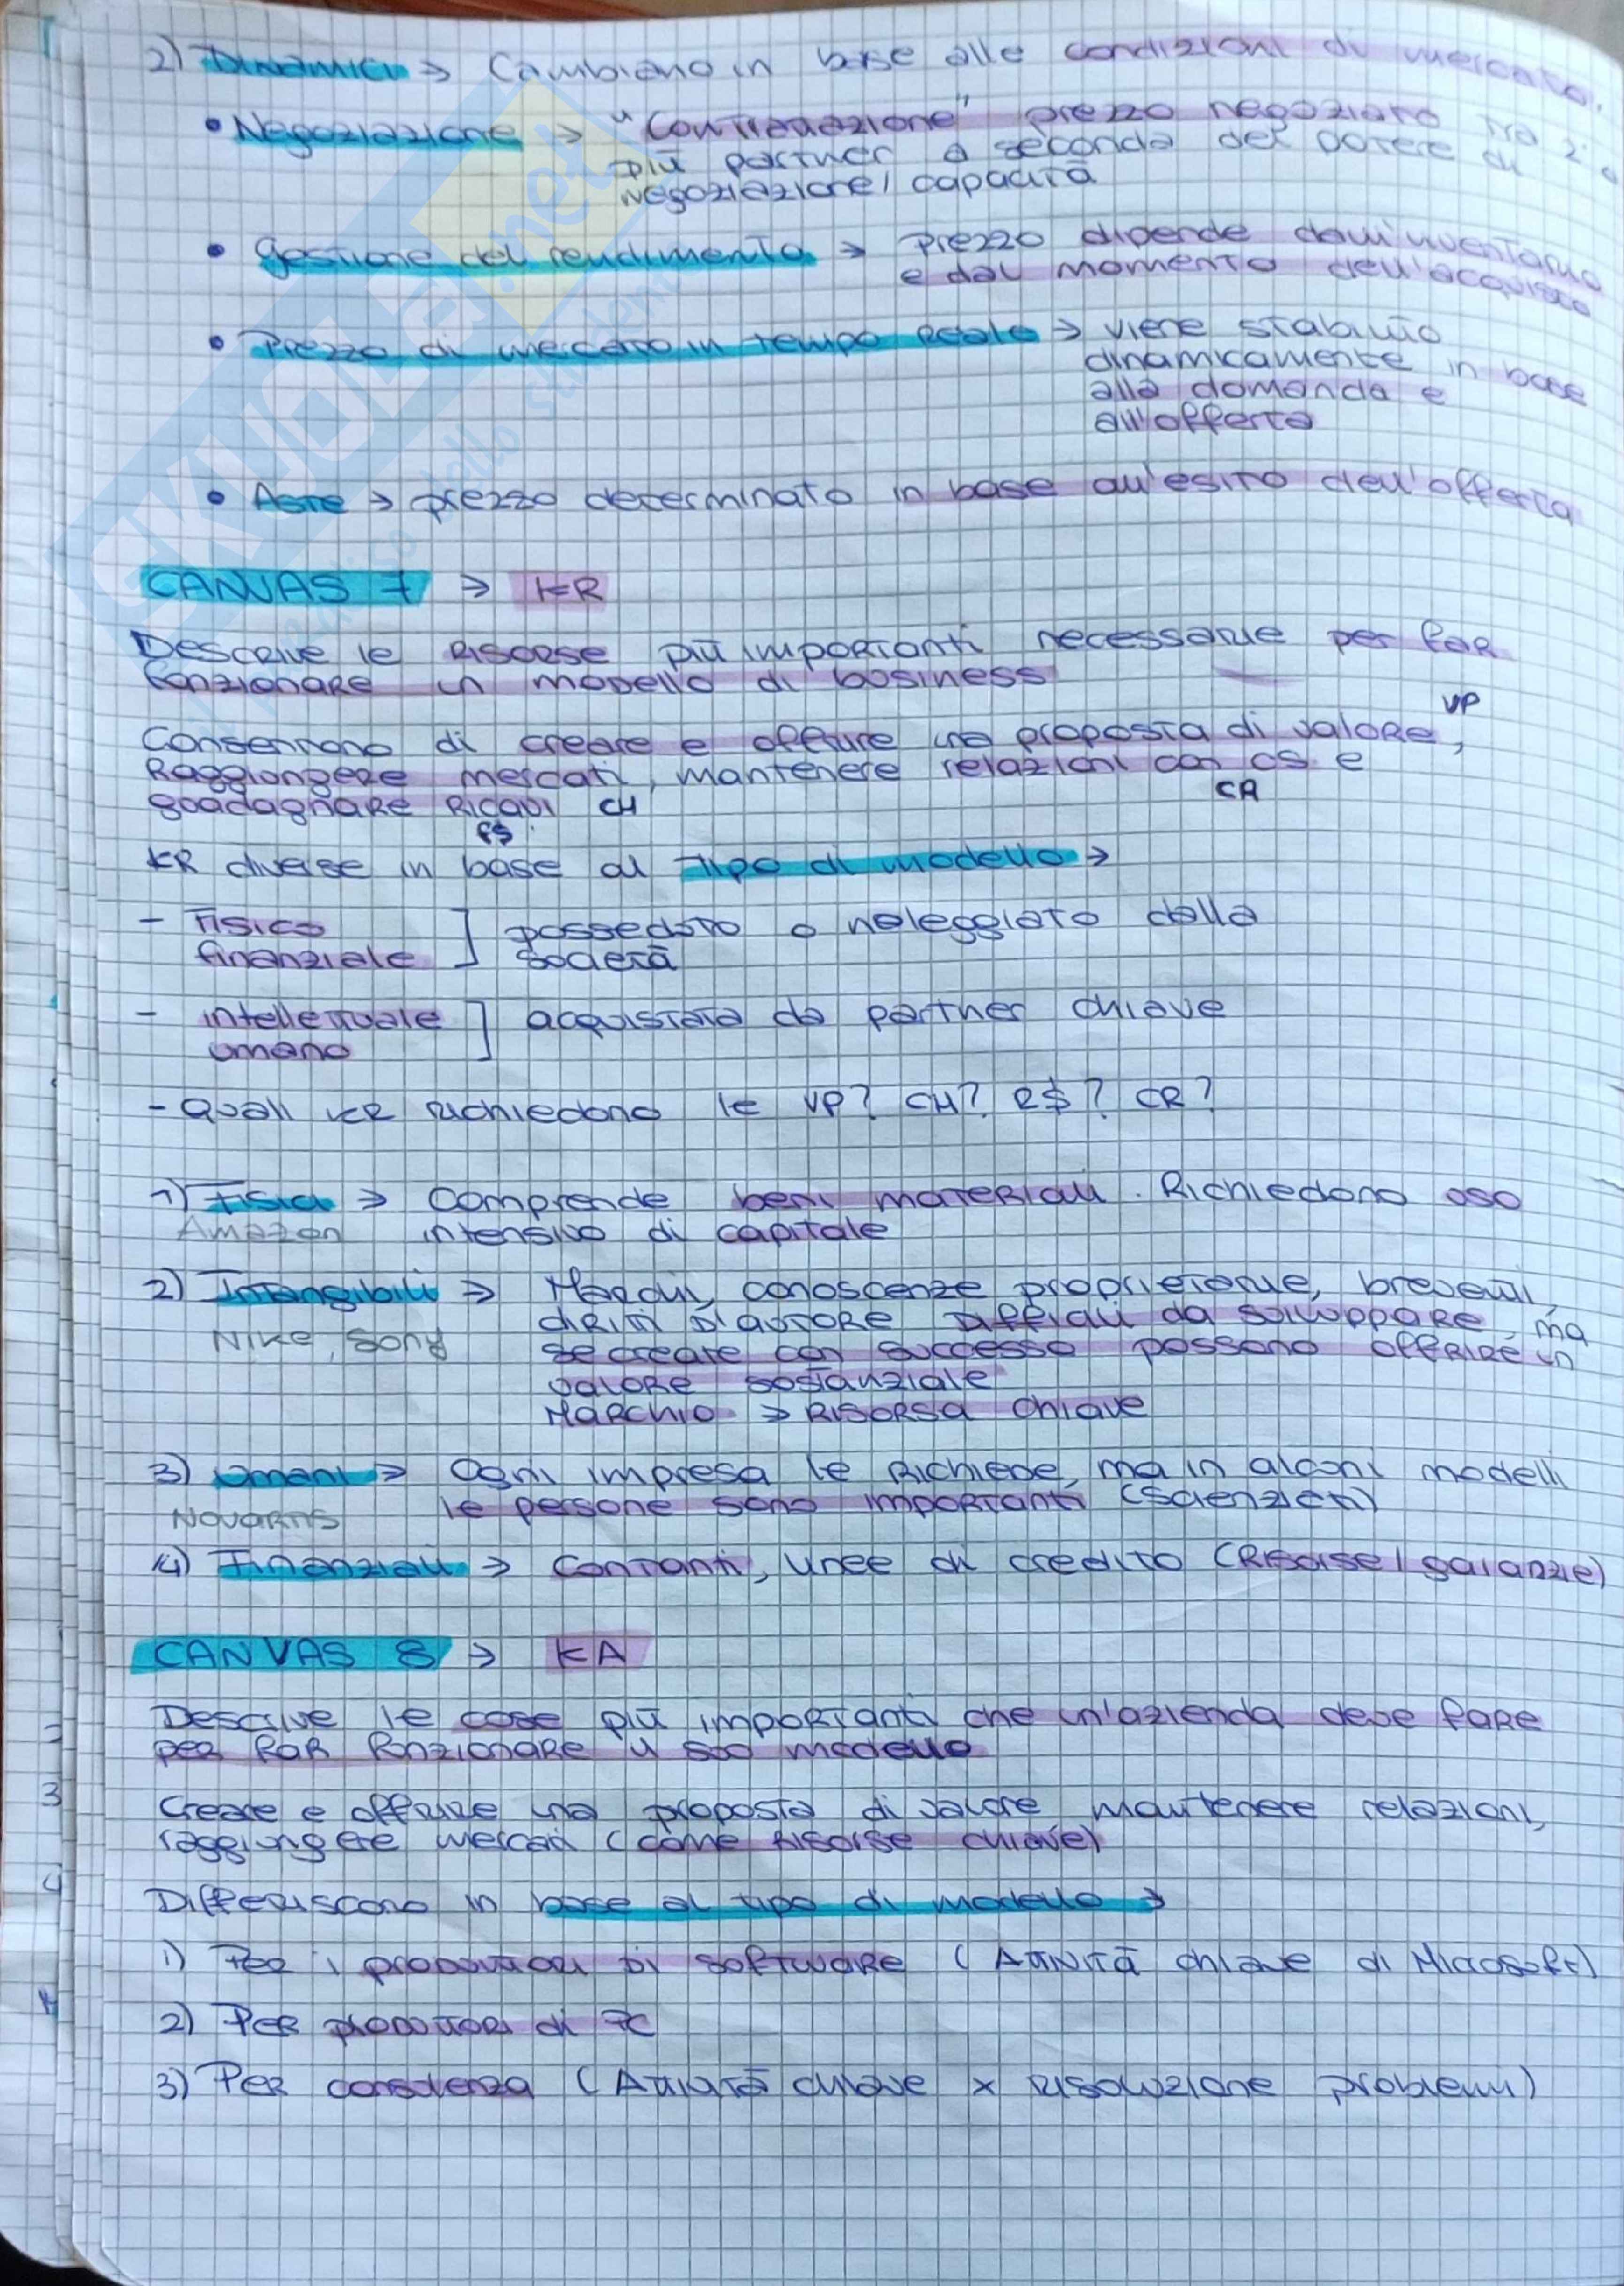 2) Dinamici → Cambiano in base alle condizioni di mercato.
• Negoziazione → "Contrattazione" prezzo negoziato tra 2 o
più partner a seconda del potere di
negoziazione/capacità
• Gestione del rendimento → prezzo dipende dall'inventario
e dal momento dell'acquisto
• Prezzo di mercato in tempo reale → viene stabilito
dinamicamente in base
alla domanda e
all'offerta
• Aste → prezzo determinato in base all'esito dell'offerta
CANVAS 7 → KR
Descrive le risorse più importanti necessarie per far
funzionare un modello di business
VP
Consentono di creare e offrire una proposta di valore,
Raggiungere mercati, mantenere relazioni con cs e
CR
guadagnare Ricavi CH
R$
KR diverse in base al tipo di modello →
- Fisico
finanziale ] posseduto o noleggiato dalla
società
- intellettuale
umano ] acquistata da partner chiave
- Quali KR richiedono le VP? CH? R$? CR?
1) Fisici → Comprende beni materiali. Richiedono uso
Amazon intensivo di capitale
2) Intangibili → Marchi, conoscenze proprietarie, brevetti,
diritti d'autore Difficili da sviluppare, ma
Nike, Sony se create con successo possono offrire un
valore sostanziale
Marchio → Risorsa chiave
3) Umani → Ogni impresa le richiede, ma in alcuni modelli
Novartis le persone sono importanti (Scienziati)
4) Finanziali → Contanti, linee di credito (Risorse/garanzie)
CANVAS 8 → KA
Descrive le cose più importanti che un'azienda deve fare
per far funzionare il suo modello
Creare e offrire una proposta di valore mantenere relazioni,
raggiungere mercati (come risorse chiave)
Differiscono in base al tipo di modello →
1) Per i produttori di software (Attività chiave di Microsoft)
2) Per produttori di PC
3) Per consulenza (Attività chiave x risoluzione problemi)
SKUOLA.net